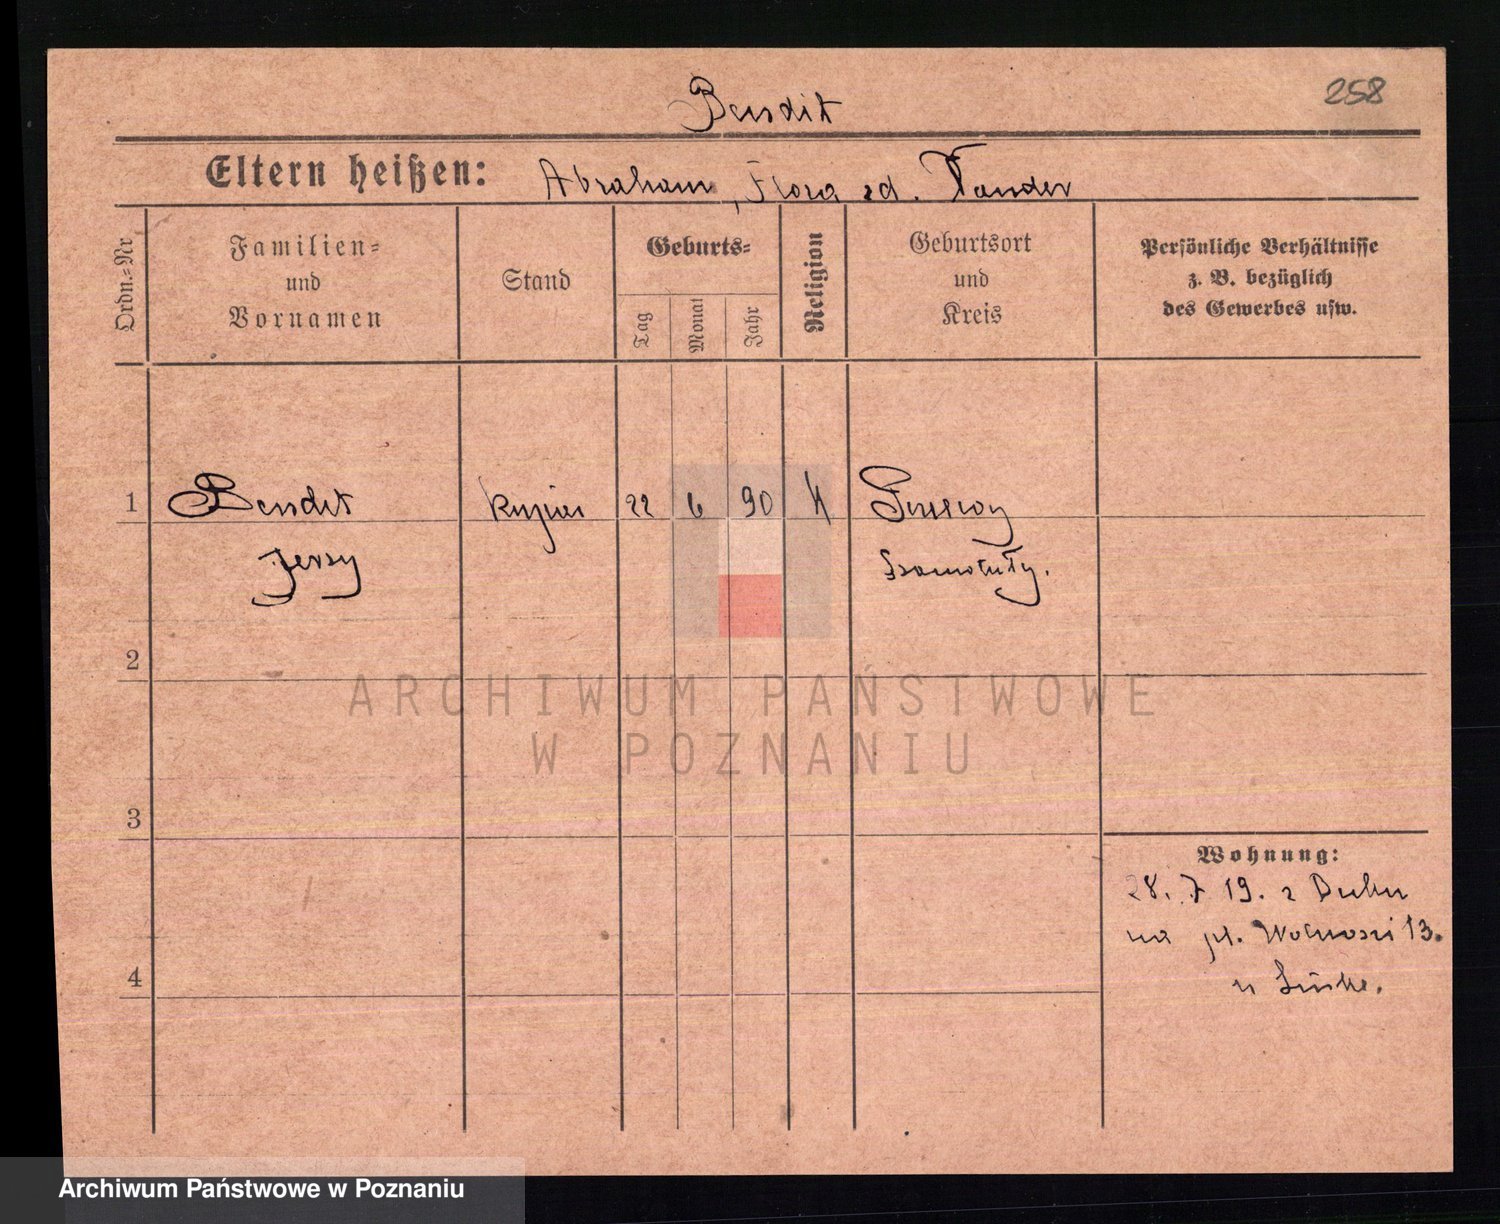 258
Bendit
Eltern heißen: Abraham, Flora zd. Tander
Ordn.=Nr
Familien=
und
Vornamen
Stand
Geburts=
Tag
Monat
Jahr
Religion
Geburtsort
und
Kreis
Persönliche Verhältnisse
z. B. bezüglich
des Gewerbes usw.
1 Bendit kupiec 22 6 90
Jerzy Szamotuły.
2
3
4
Wohnung:
28. 7 19. z
na pl. Wolności 13.
u
ARCHIWUM PAŃSTWOWE
W POZNANIU
Archiwum Państwowe w Poznaniu